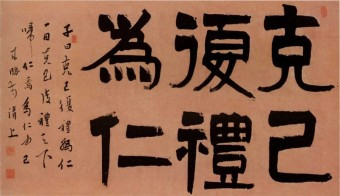 克己
復禮
為仁
子曰克己復禮爲仁
一日克己復禮天下
歸仁焉為仁由己